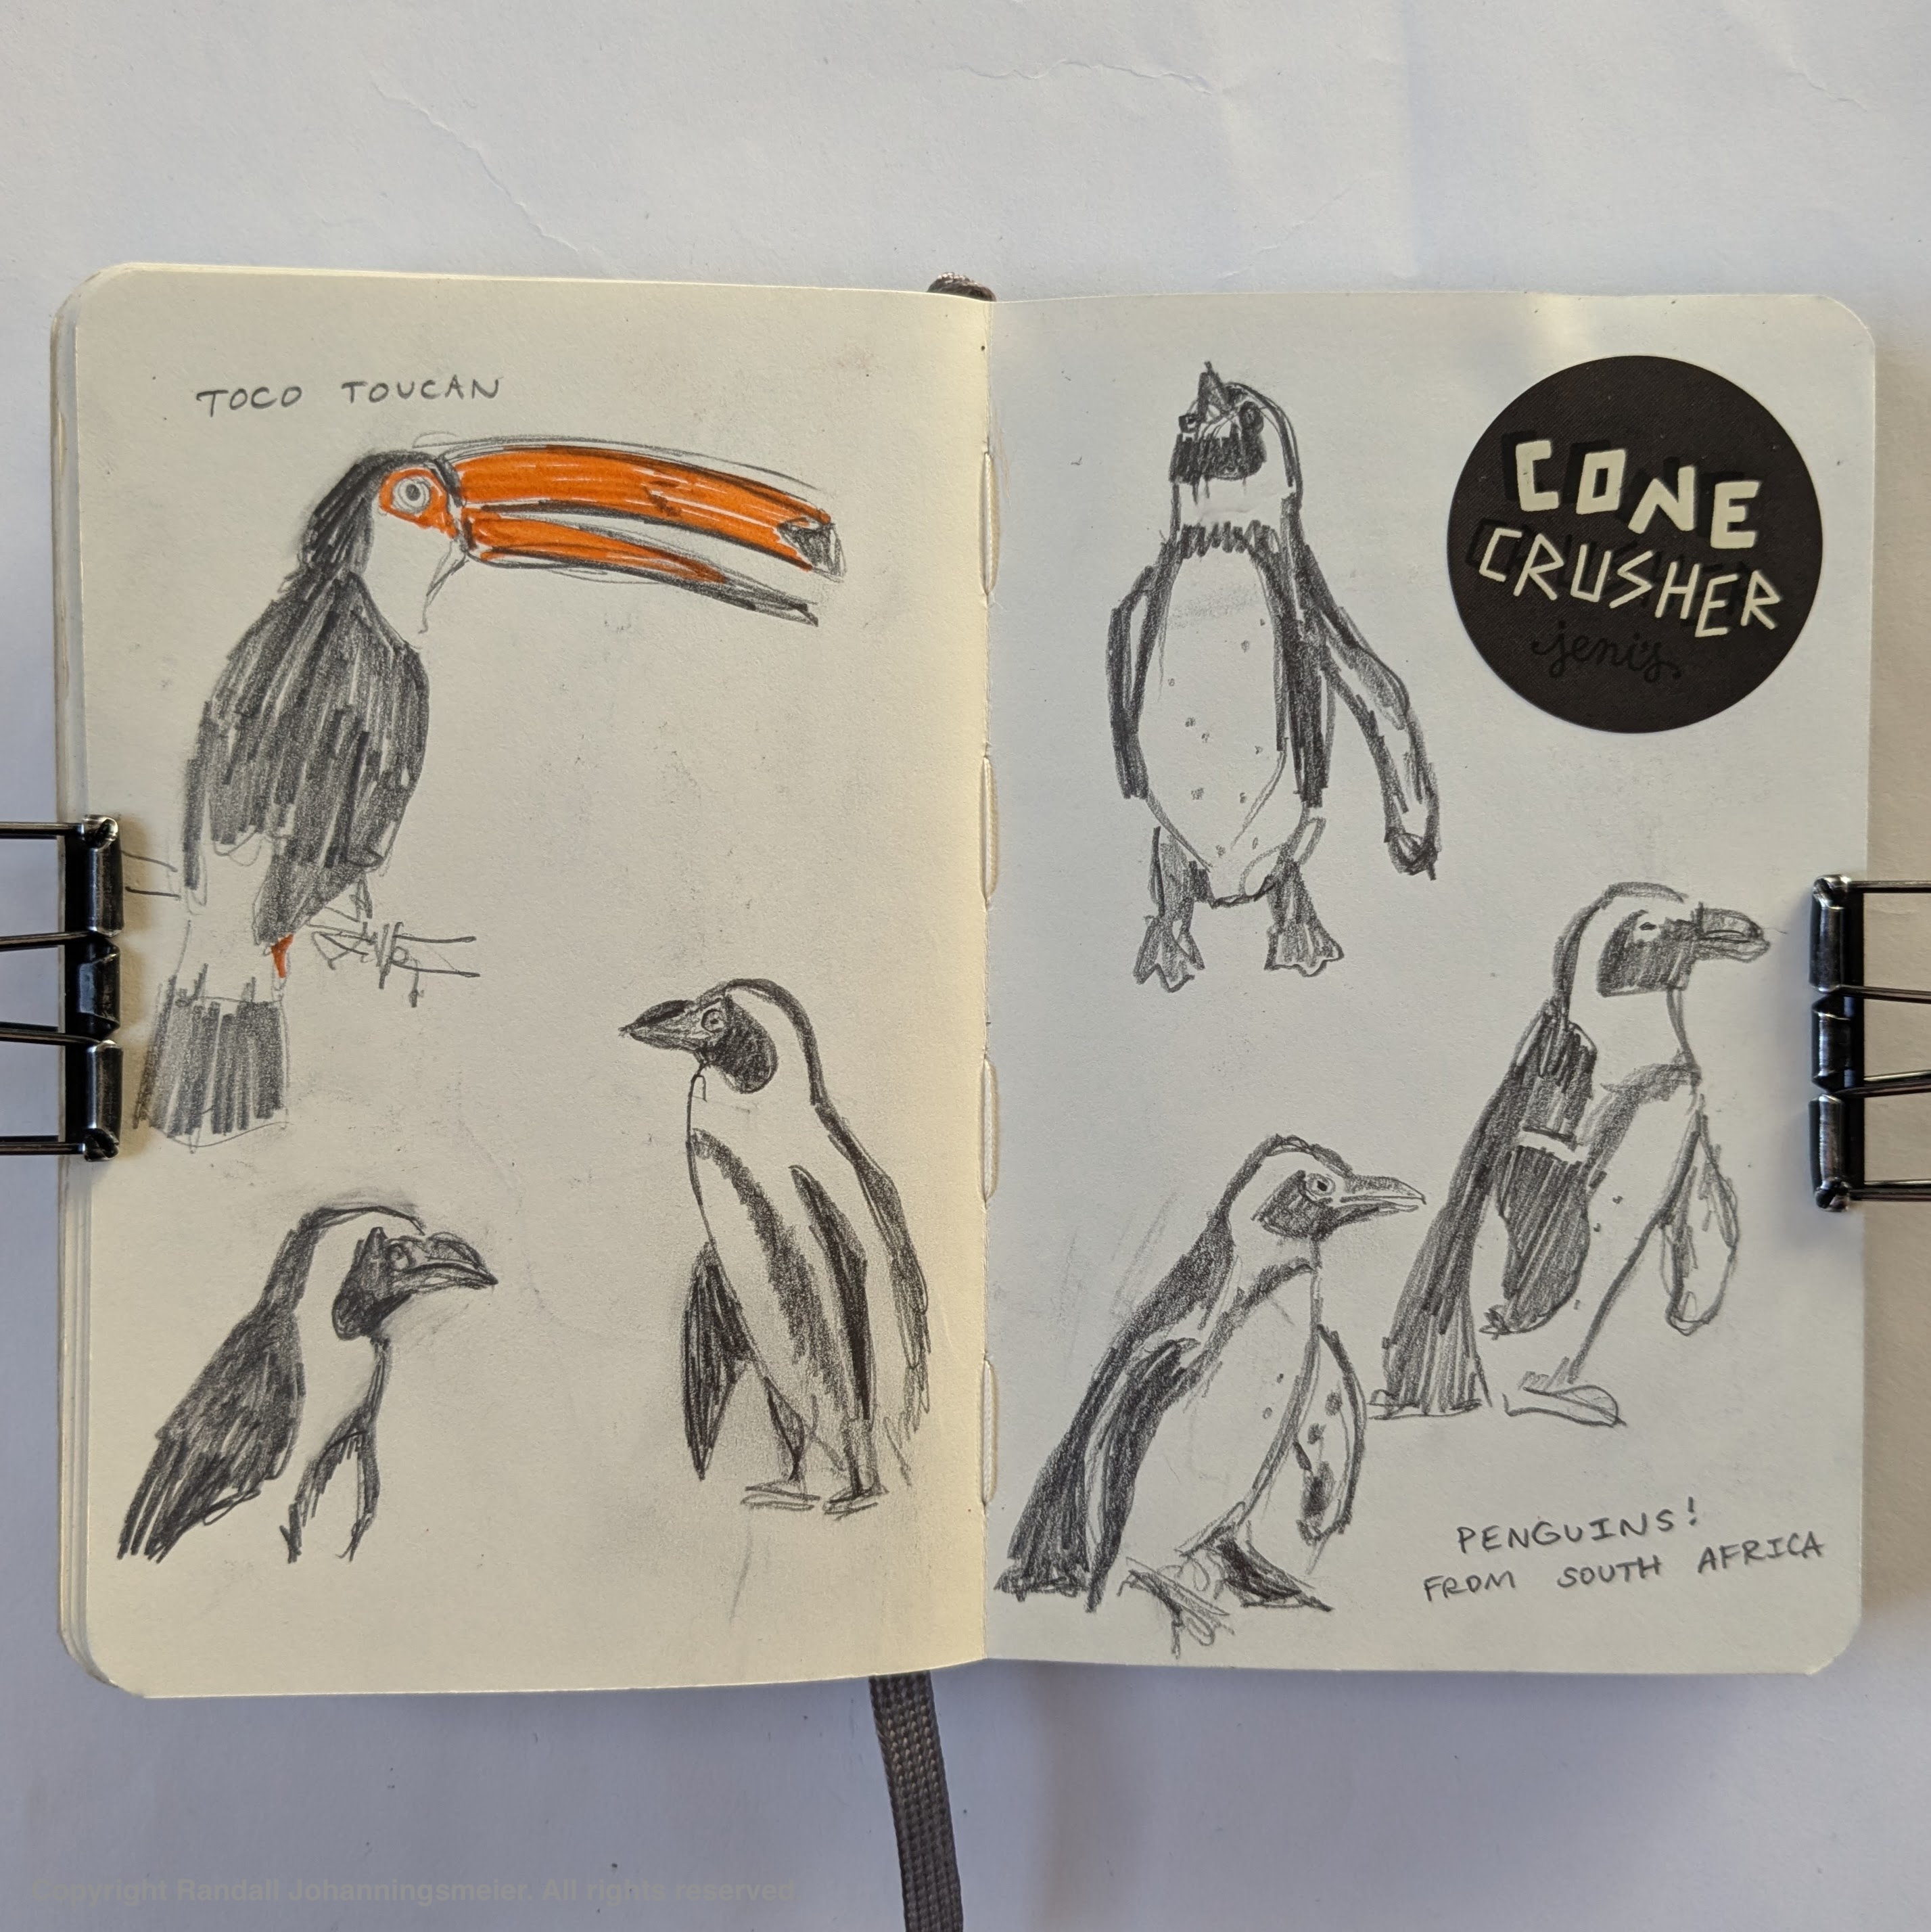 TOCO TOUCAN
CONE
CRUSHER
jeni's
PENGUINS!
FROM SOUTH AFRICA
Copyright Randall Johanningsmeier. All rights reserved